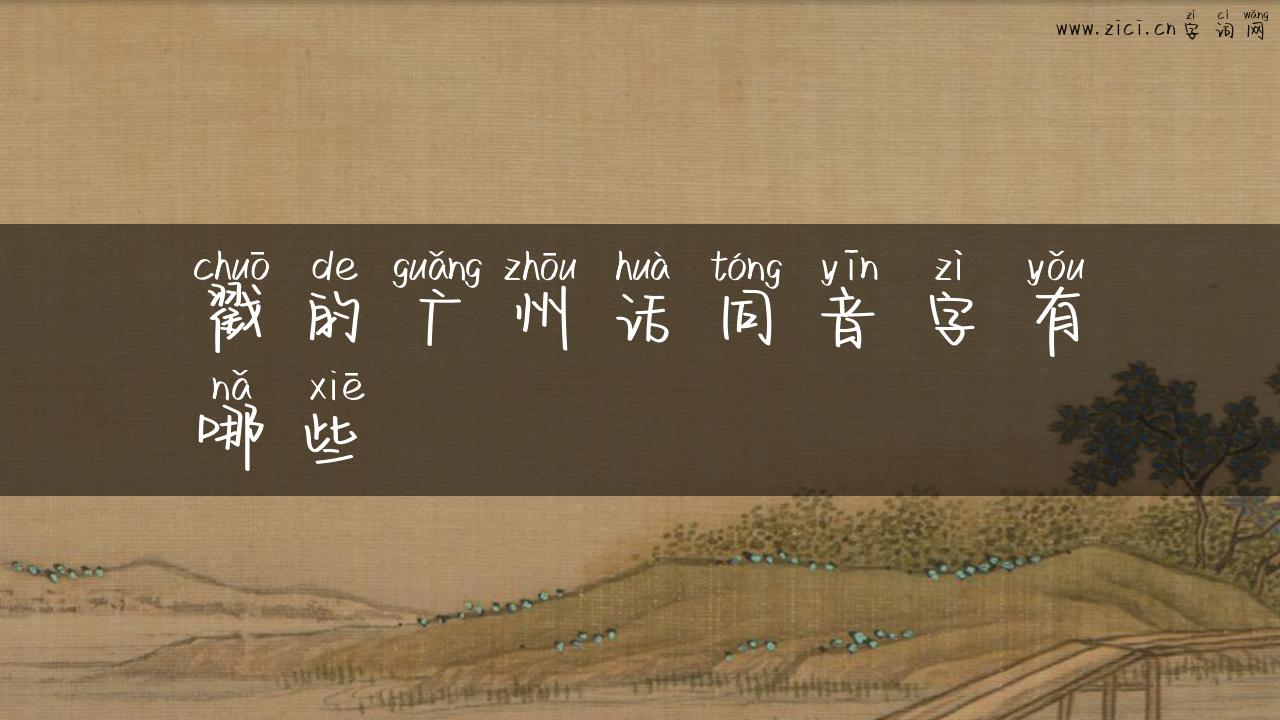 zì cí wǎng
www.zici.cn 字 词 网
chuō de guǎng zhōu huà tóng yīn zì yǒu
戳 的 广 州 话 同 音 字 有
nǎ xiē
哪 些